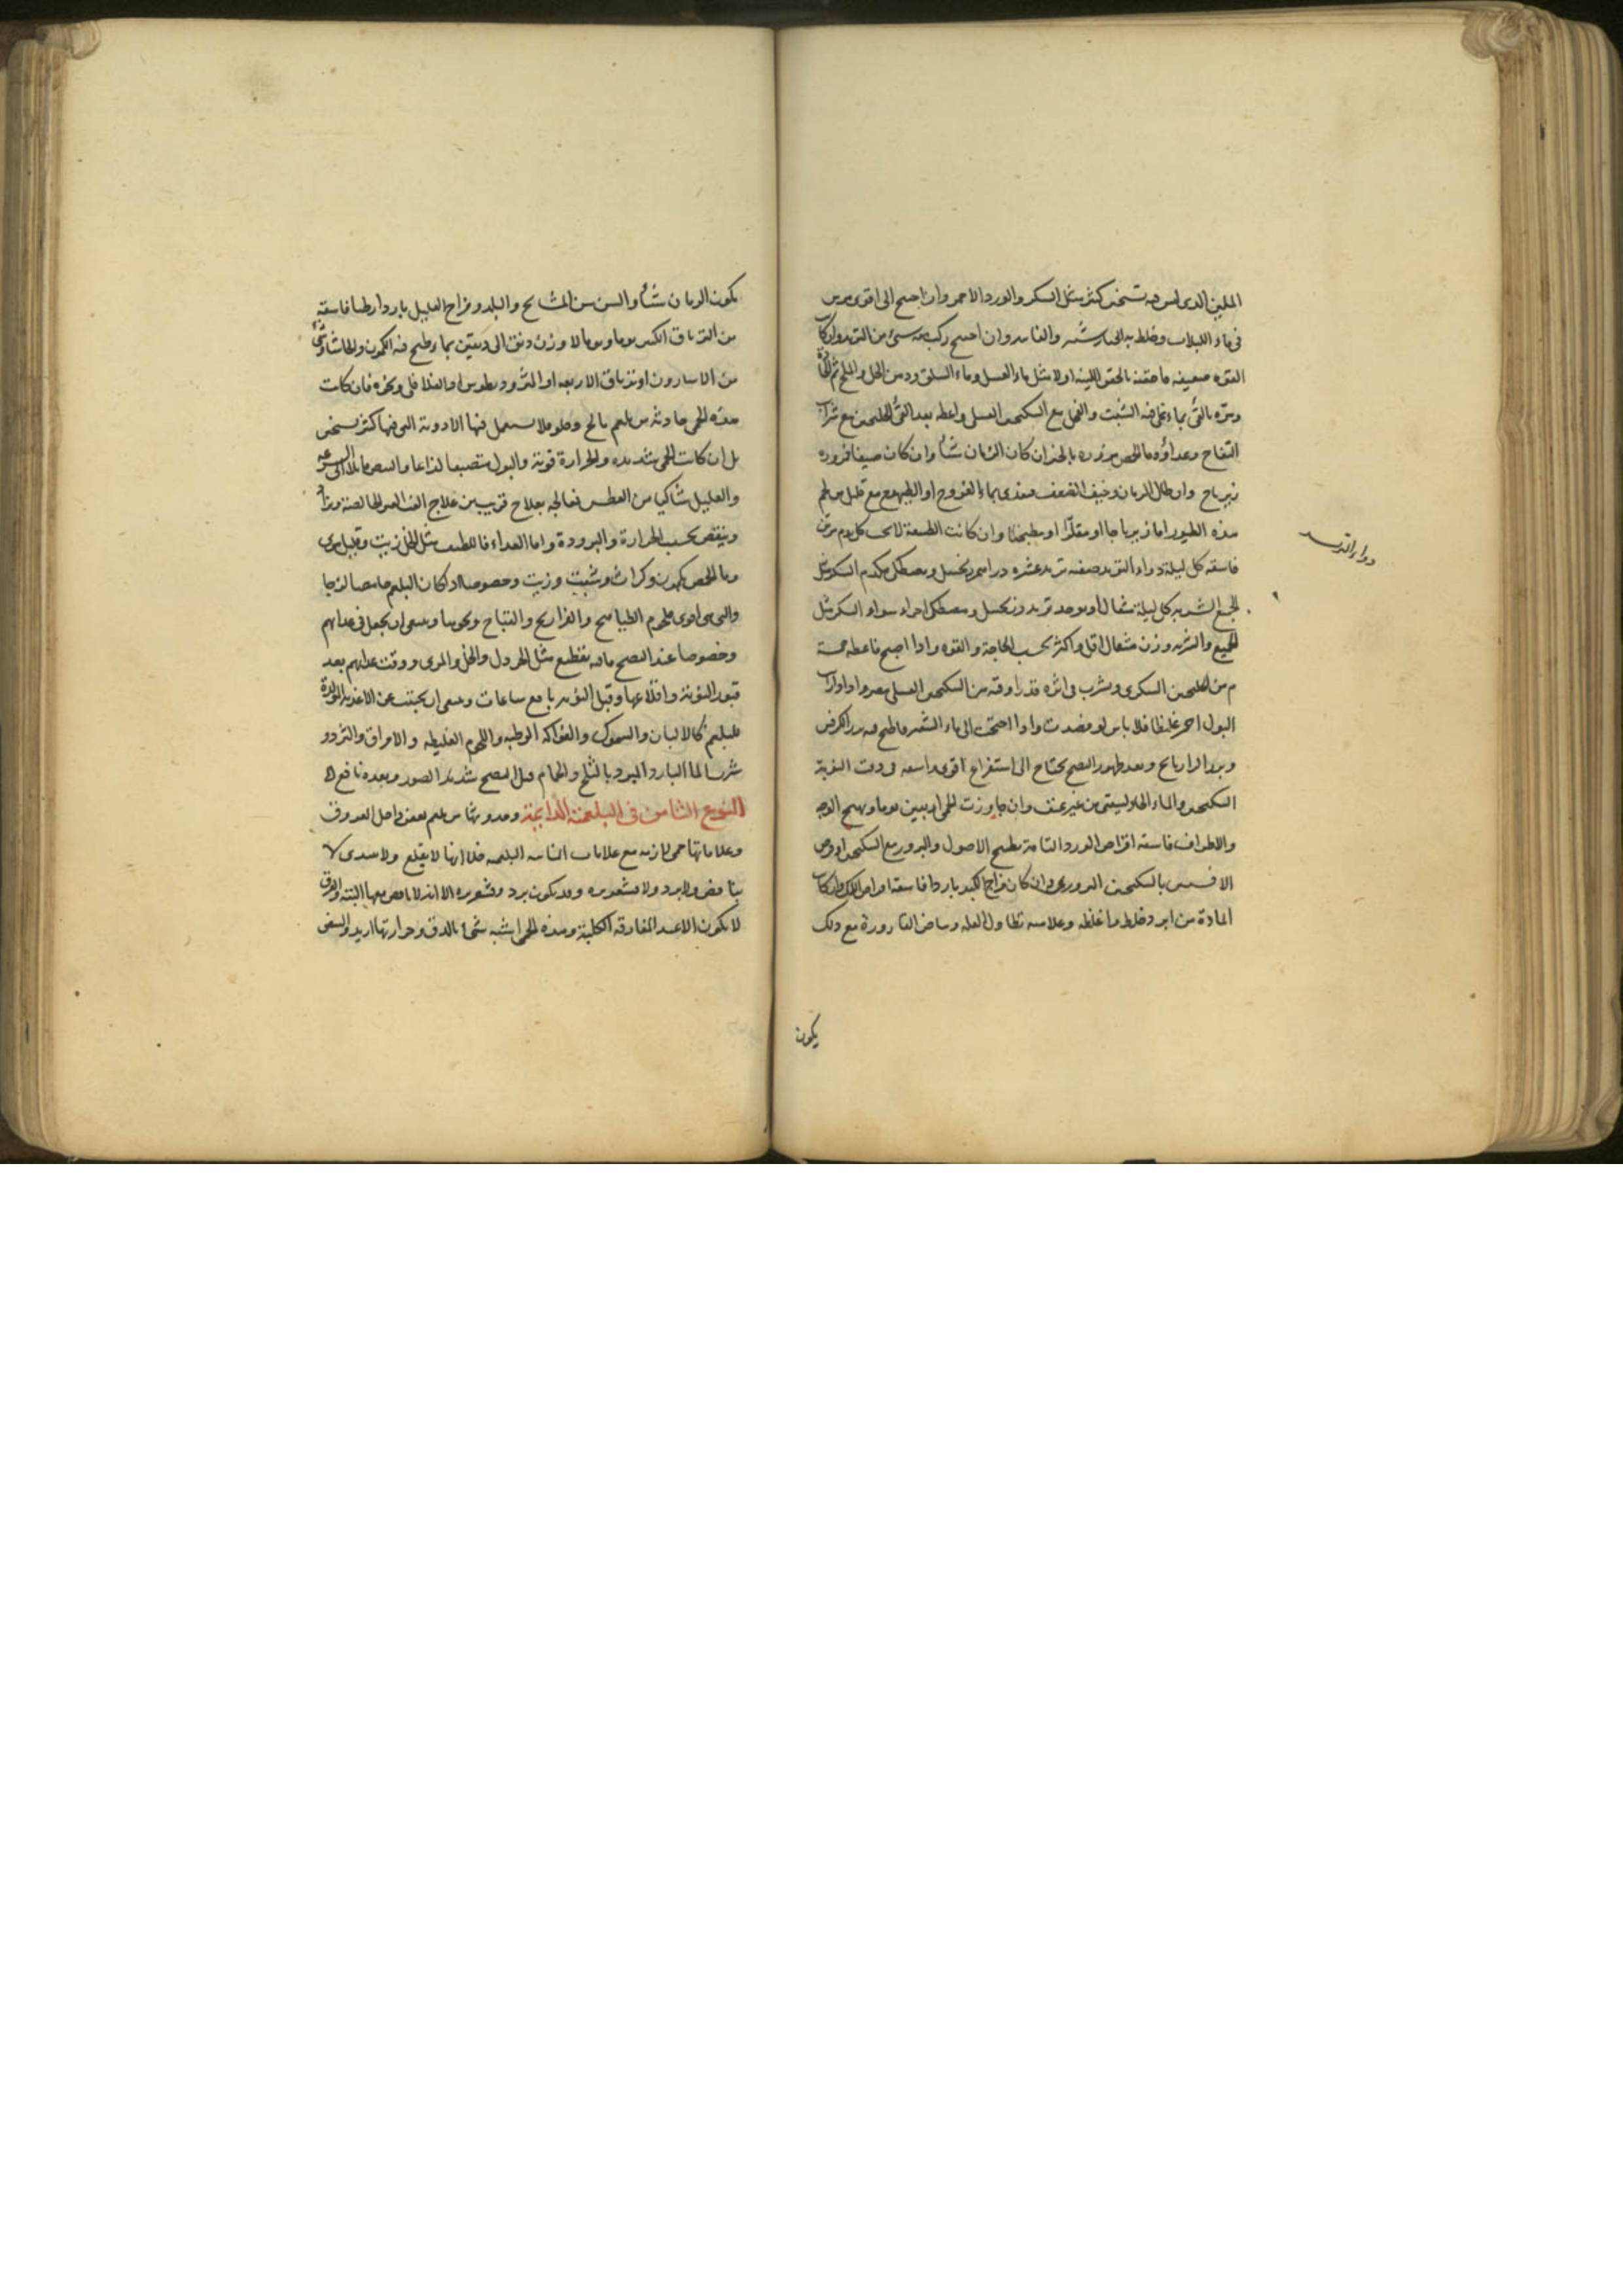 الملين الذى ليس فيه تسخين كثير مثل السكر والورد الاحمر وان احتيج الى اقوى مرس
فى ماء اللبلاب وخلط به الخيار شنبر والفانيد وان احتيج ركب فيه شىء من التربد وان كا
القوة ضعيفه فاحقنه بالحقن اللينه اولا مثل ماء العسل وماء السلق ودهن الخل والملح ثم
ومره بالقئ بماء يغلى فيه الشبت والفجل مع السكنجبين العسلى واعطه بعد القئ الجلنجبين مع شراب
التفاح وغذاؤه ماء الحمص مزوره بالخبز ان كان الزمان شتاء وان كان صيفا فزوره
زيرباج وان طال الزمان وخيف الضعف فغذه بماء الفروج او الطيهوج مع قليل من لحم
هذه الطيور اما زيرباجا او مقلّا او مطبخا وان كانت الطبيعة لا تجيب كل يوم مرتين
فاسقه كل ليلة دواء التربد صفته تربد عشره دراهم زنجبيل ومصطكى السكر مثل
الجميع الشربه كل ليلة مثقال او يوخذ تربد وزنجبيل ومصطكى اجزاء سواء السكر مثل
الجميع والشربه وزن مثقال اقل واكثر بحسب الحاجة والقوه واذا اصبح فاعطه خمسة
م من الجلنجبين السكرى ويشرب فى اثره قدر اوقيه من السكنجبين العسلى واذا رايت
البول احمر غليظا فلا باس لو فصدت واذا احتجت الى ماء الشعير فاطبخ فيه بزر الكرفس
وبزر الرازيانج وبعد ظهور النضج يحتاج الى استفراغ اقوى واسقه فى وقت النوبة
السكنجبين والماء الحار ليستقى من غير عنف وان جاوزت الحمى اربعين يوما وتهيج الوجه
والاطراف فاسقه اقراص الورد التامة بطبيخ الاصول والبزور مع السكنجبين او قرص
الافسنتين بالسكنجبين البزورى وان كان مزاج الكبد باردا فاسقه اقراص اللك وان كانت
المادة من ابرد خلط واغلظه وعلامته تطاول العله وبياض القارورة مع ذلك
دواء التربد
يكون
يكون الزمان شتاء والسن سن المشايخ والبلد ومزاج العليل باردا رطبا فاسقه
من الترياق الكبير يوما ويوما لا وزن دنق الى دنقين بماء طبخ فيه الكمون والحاشا وشئ
من الاسارون او ترياق الاربعه او المثروديطوس او الفلافلى ونحوه فان كانت
هذه الحمى حادثه من بلغم مالح وحلو فلا يستعمل فيها الادوية التى فيها كثير تسخين
بل ان كانت الحمى شديده والحرارة قوية والبول منصبغا لذاعا والنبض مائلا الى السرعه
والعليل شاكيا من العطس فعالجه بعلاج قريب من علاج الغب الغير الخالصة وزد
وينقص بحسب الحرارة والبرودة واما الغذاء فاللطيف مثل الخل زيت وقليل مرى
وماء الحمص بكمون وكراث وشبت وزيت وخصوصا اذا كان البلغم حامضا لزجا
والتى هى اقوى بلحوم الطياهيج والدراريج والقباج ونحوها وينبغى ان يجعل فى غذائهم
وخصوصا عند النضج ما فيه تقطيع مثل الخردل والخل والمرى ووقت غذائهم بعد
فتور النوبة واقلاعها وقبل النوبه باربع ساعات وينبغى ان يجتنب عن الاغذيه المولدة
للبلغم كالالبان والسموك والفواكه الرطبه واللحوم الغليظه والامراق والثردو
شربها الماء البارد المبرد بالثلج والحمام قبل النضج شديد الضرر وبعده نافع ه
النوع الثامن فى البلغمية الدايمة وحدوثها من بلغم يعفن داخل العروق
وعلاماتها حمى لازمه مع علامات النائبه البلغميه خلا انها لا يقلع ولا يبتدى لا
بنافض ولا برد ولا قشعريره وقد يكون برد وقشعريره الا انه لا نافض معها البتة والعرق
لا يكون الا عند المفارقه الكلية وهذه الحمى اشبه شئ بالدق وحرارتها ازيد والنبض